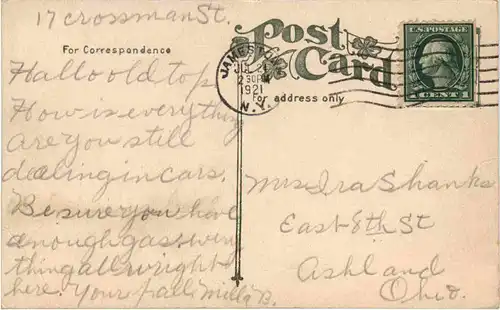 17 crossman St.
Post
Card
For Correspondence
for address only
JAMEST
JUL 2
2 30 P
1921
N.Y.
U.S. POSTAGE
1 CENT 1
Hallo old top
How is everything
are you still
dealing in cars.
Be sure you have
enough gas + every
thing all wright
here. Your pall, Milla B.
Mrs Ira Shanks
East 8th St
Ashland
Ohio.